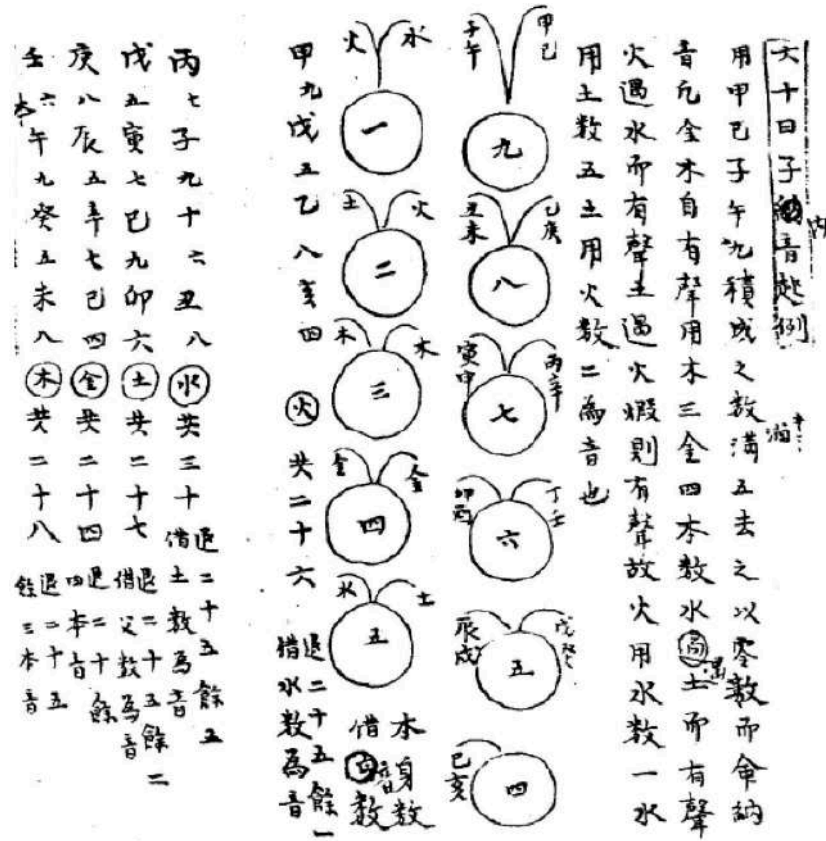 六十日子納音起例
内
用甲己子午九積成之数满五去之以零数而命納
音凡金木自有聲用木三金四本数水遇土而有聲
火遇水而有聲土過火煅則有聲故火用水数一水
用土数五土用火数二為音也
甲己
子午
九
乙庚
丑未
八
丙辛
寅申
七
丁壬
卯酉
六
戊癸
辰戌
五
巳亥
四
水
火
一
火
土
二
木
木
三
金
金
四
土
水
五
本身数
借音数
甲九戊五乙八亥四 火 共二十六 退二十五餘一
借水数為音
丙七子九十六丑八 水 共三十 退二十五餘五
借土数為音
戊五寅七巳九卯六 土 共二十七 退二十五餘二
借父数為音
庚八辰五辛七巳四 金 共二十四 退二十餘
四本音
壬六午九癸五未八 木 共二十八 退二十五
餘三本音